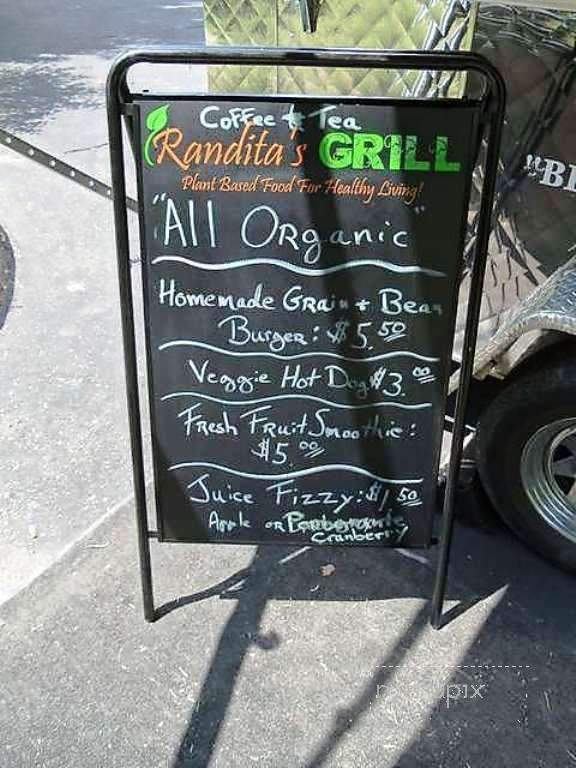 Coffee & Tea
Randita's GRILL
Plant Based Food For Healthy Living!
"All Organic"
Homemade Grain + Bean
Burger: $5.50
Veggie Hot Dog $3.00
Fresh Fruit Smoothie:
$5.00
Juice Fizzy: $1.50
Apple or
Cranberry